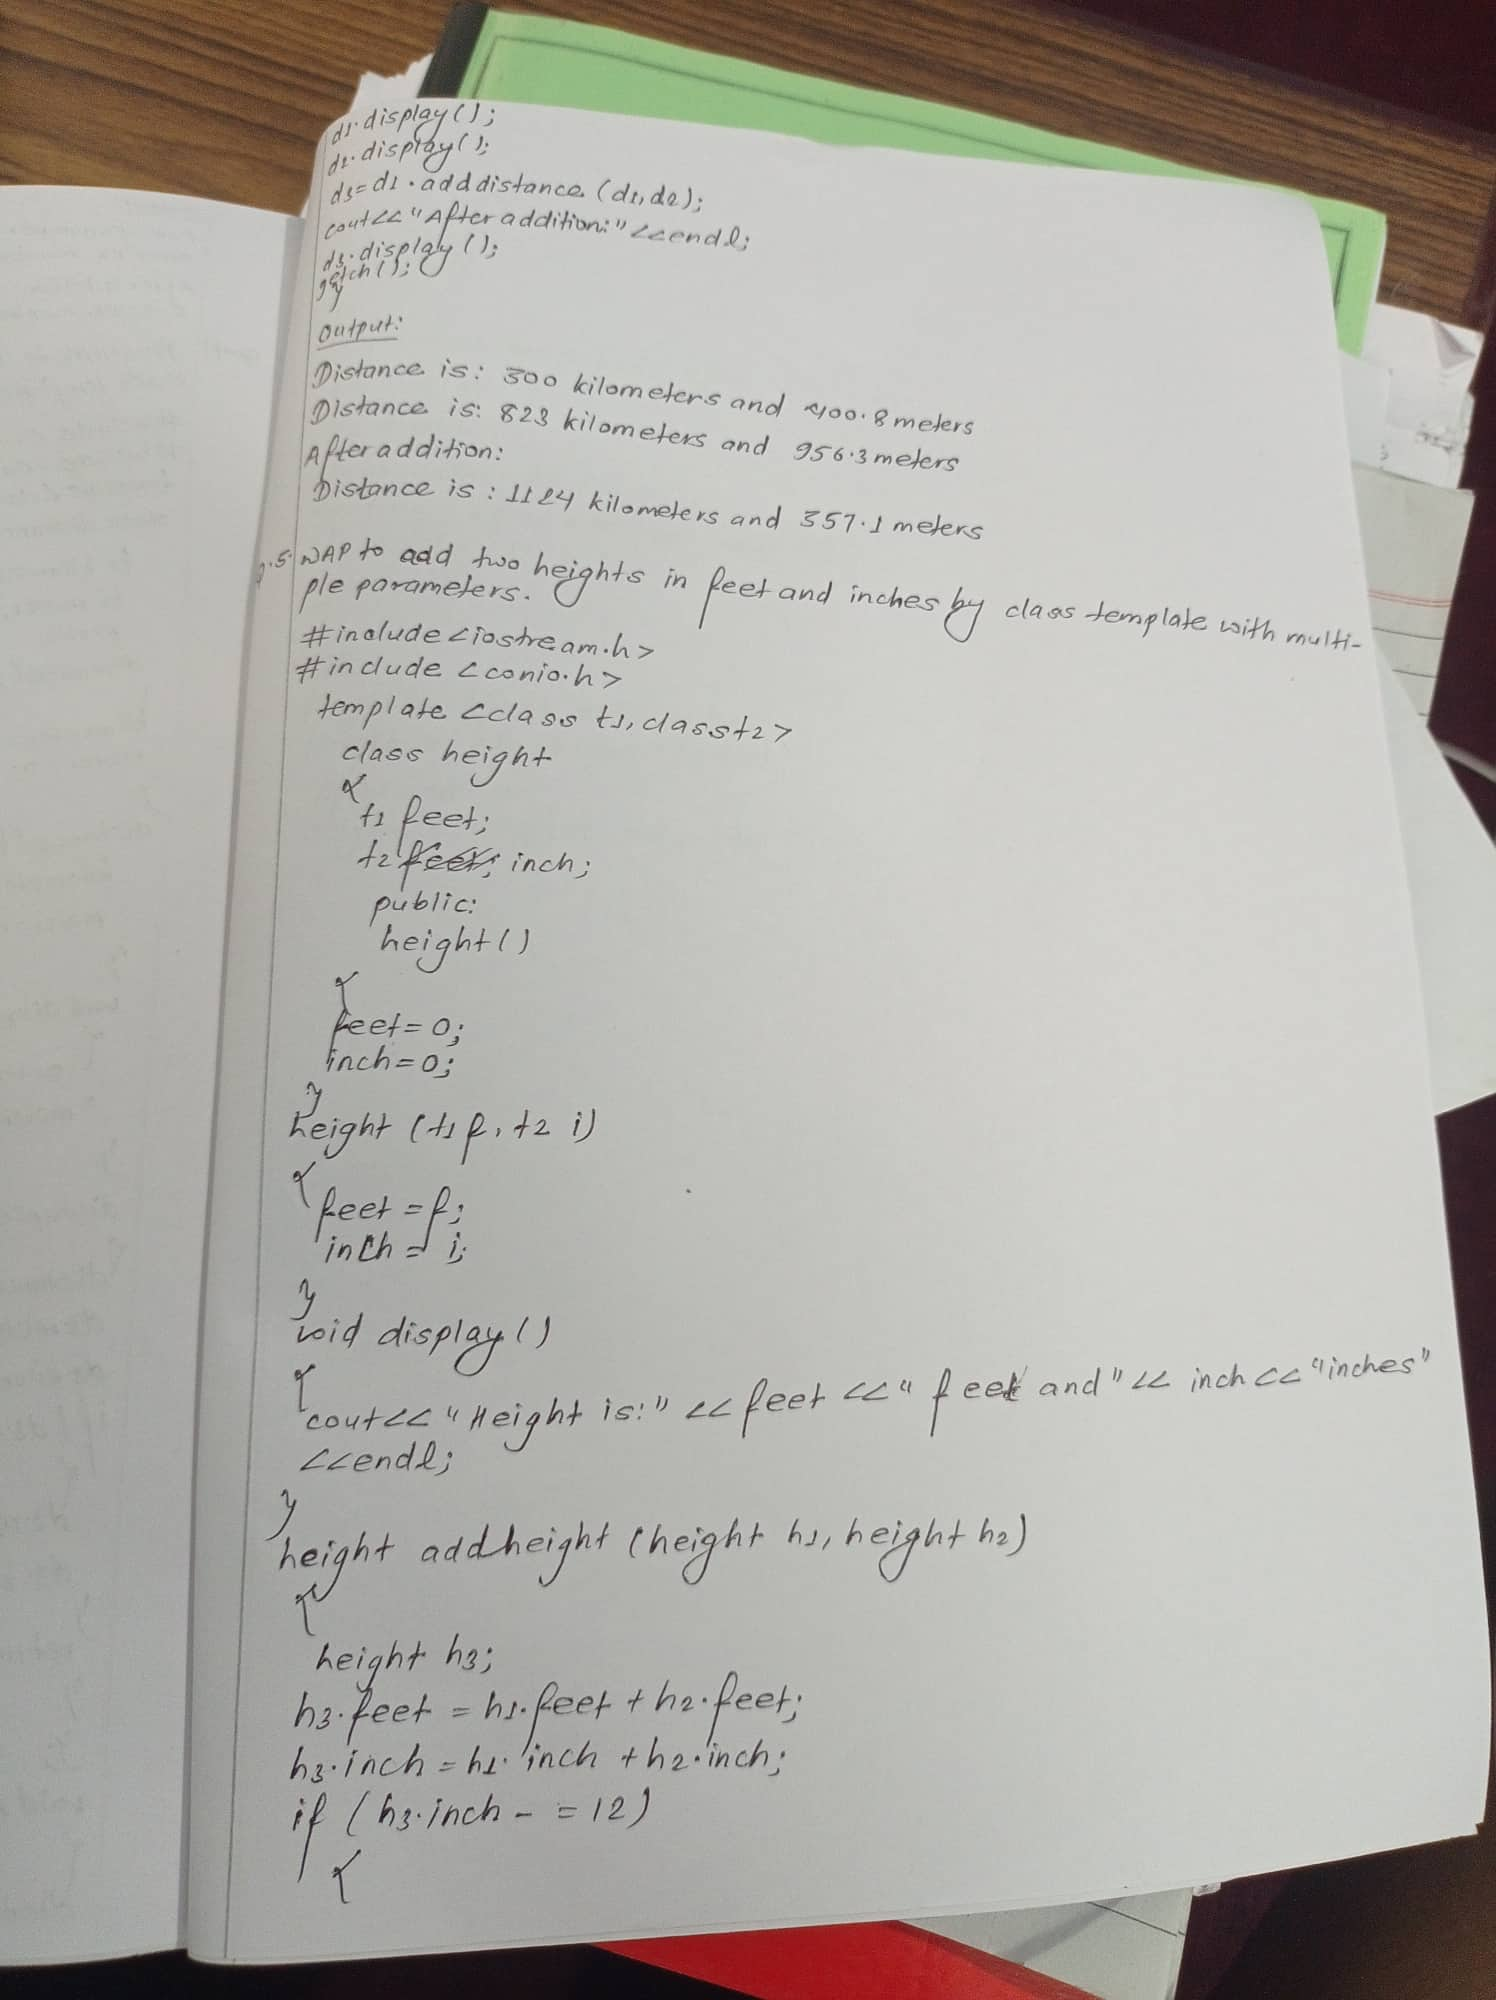 d1.display();
d2.display();
d3=d1.adddistance(d1,d2);
cout<<"After addition:"<<endl;
d3.display();
getch();
}
Output:
Distance is: 300 kilometers and 400.8 meters
Distance is: 823 kilometers and 956.3 meters
After addition:
Distance is: 1124 kilometers and 357.1 meters
5. WAP to add two heights in feet and inches by class template with multi-
ple parameters.
#include<iostream.h>
#include<conio.h>
template <class t1, class t2>
class height
{
t1 feet;
t2 inch;
public:
height()
{
feet=0;
inch=0;
}
height (t1 f, t2 i)
{
feet = f;
inch = i;
}
void display()
{
cout<<"Height is:"<<feet<<"feet and"<<inch<<"inches"
<<endl;
}
height addheight (height h1, height h2)
{
height h3;
h3.feet = h1.feet + h2.feet;
h3.inch = h1.inch + h2.inch;
if (h3.inch - = 12)
{